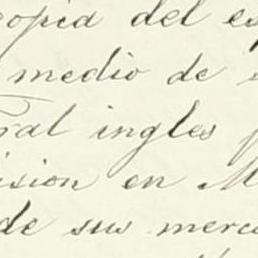 copia del es
medio de
ral ingles p
ision en M
de sus merc